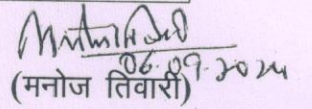 06.09.2024
(मनोज तिवारी)